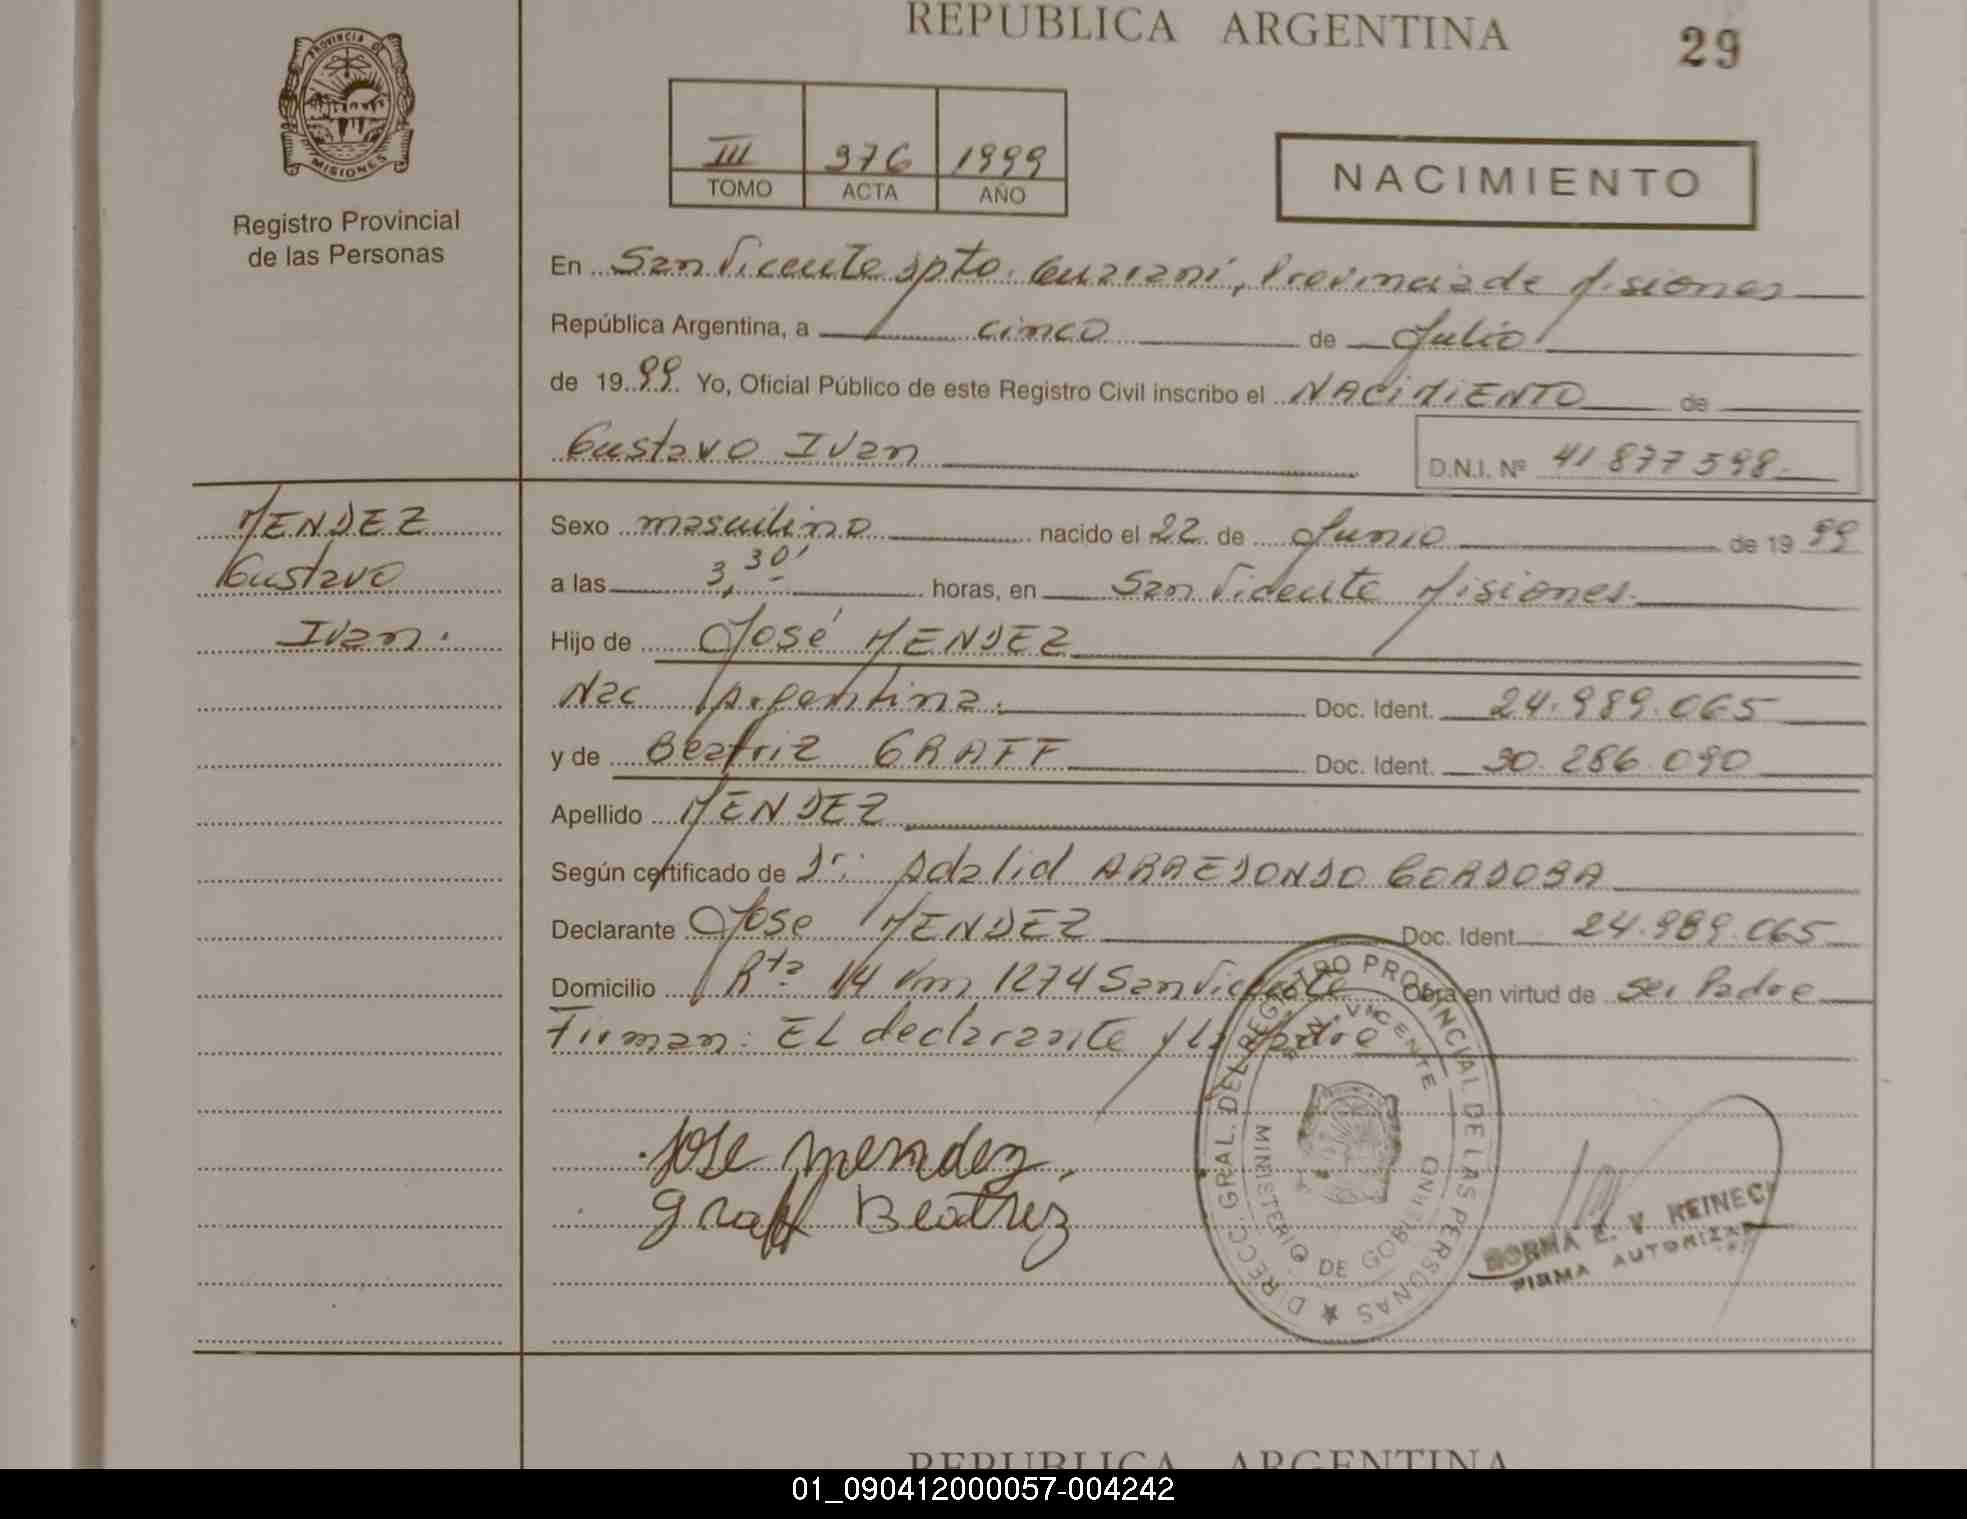 REPUBLICA ARGENTINA
29
PROVINCIA DE MISIONES
Registro Provincial
de las Personas
III 976 1999
TOMO ACTA AÑO
NACIMIENTO
En San Vicente Dpto. Guarani, Provincia de Misiones
República Argentina, a cinco de Julio
de 19 99 Yo, Oficial Público de este Registro Civil inscribo el NACIMIENTO de
Gustavo Ivan
D.N.I. Nº 41 877 598
MENDEZ
Gustavo
Ivan.
Sexo masculino nacido el 22 de Junio de 19 99
a las 3,30' horas, en San Vicente Misiones.
Hijo de José MENDEZ
Nac Argentina. Doc. Ident. 24.989.065
y de Beatriz GRAFF Doc. Ident. 30.286.090
Apellido MENDEZ
Según certificado de Dr: Adalid ARREDONDO CORDOBA
Declarante Jose MENDEZ Doc. Ident. 24.989.065
Domicilio Rta 14 Km 1274 San Vicente Obra en virtud de ser Padre
Firman: EL declarante y la
Jose mendez
graff Beatriz
DIRECC. GRAL. DEL REGISTRO PROVINCIAL DE LAS PERSONAS
SAN VICENTE
MINISTERIO DE GOBIERNO
NORMA E. V. REINECK
FIRMA AUTORIZADA
REPUBLICA ARGENTINA
01_090412000057-004242